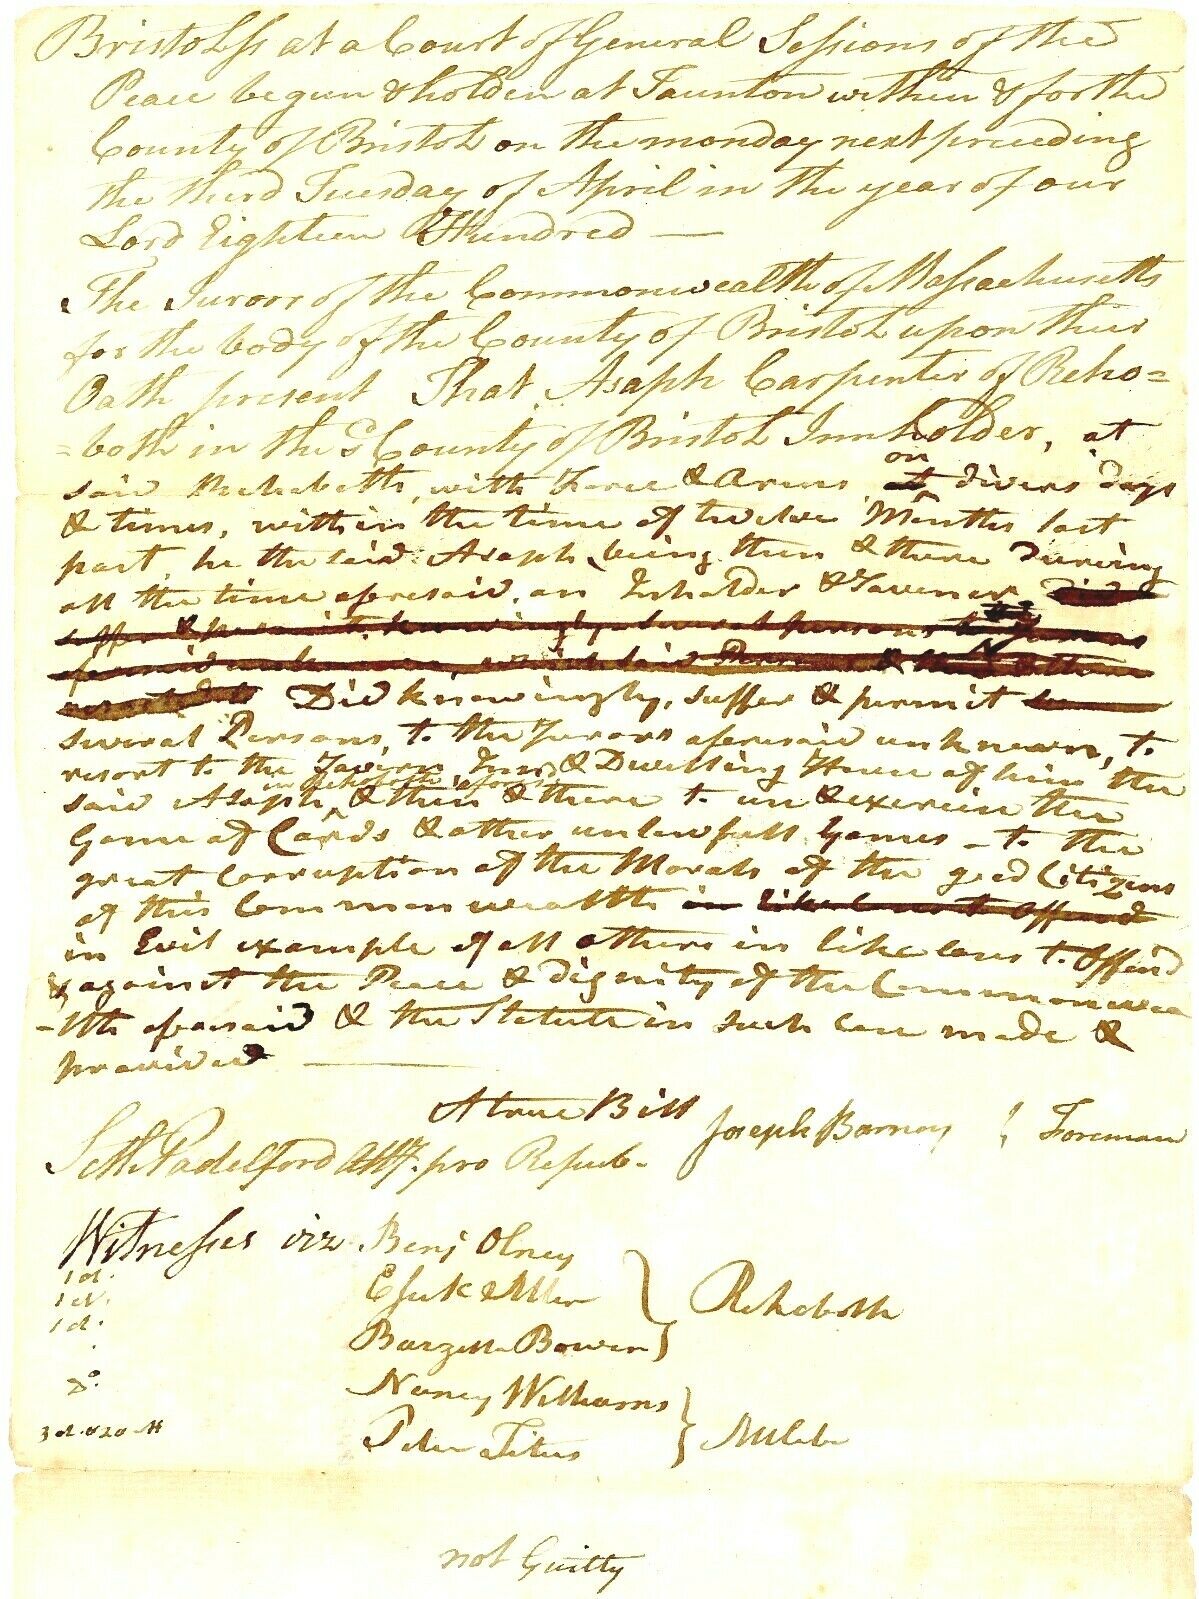 Bristol ss at a Court of General Sessions of the
Peace begun & holden at Taunton within & for the
County of Bristol on the monday next preceeding
the third Tuesday of April in the year of our
Lord Eighteen Hundred —
The Jurors of the Commonwealth of Massachusetts
for the body of the County of Bristol upon their
Oath present That Asaph Carpenter of Reho=
=both in the sd County of Bristol Innholder, at
on
said Rehoboth, with Force & Arms at divers days
& times, within the time of twelve Months last
past, he the said Asaph, being then & there During
all the time aforesaid, an Inholder & Taverner Did
suffer & permit knowingly several persons to
which said Persons & the
resorted to Did knowingly, suffer & permit
several Persons, to the Jurors aforesaid unknown, to
resort to the Tavern, Inn & Dwelling House of him the
in Rehoboth aforesd
said Asaph, & then & there to use & exercise the
Game of Cards & other unlawfull Games – to the
great Corruption of the Morals of the good Citizens
of this Commonwealth in like case to Offend
in Evil example of all others in like case to Offend
& against the Peace & dignity of the Commonwea
-lth aforesaid & the Statute in such case made &
provided —
A true Bill Joseph Barney } Foreman
Seth Padelford Atty. pro Repub-
Witnesses viz Benj Olney
1 d.
Esek Miller
1 d.
1 d.
Rehoboth
Bowen
Do.
Nancy Williams
3 d. & 20 M
Peter Titus
not Guilty